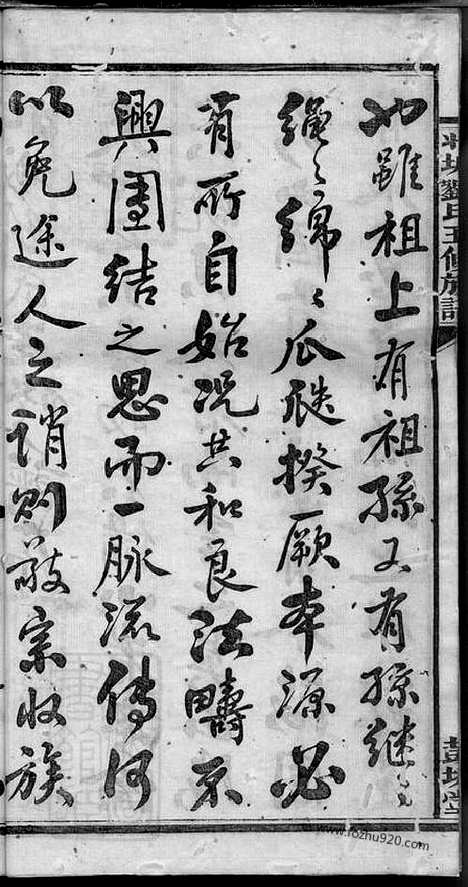 也雖祖上有祖孫又有孫繼〻
繩〻綿〻瓜瓞揆厥本源必
有所自始况共和良法疇不
興團結之思而一脉流傳何
以免途人之誚則敬宗收族
劉氏五修族譜
彭城堂
www.rozhu920.com